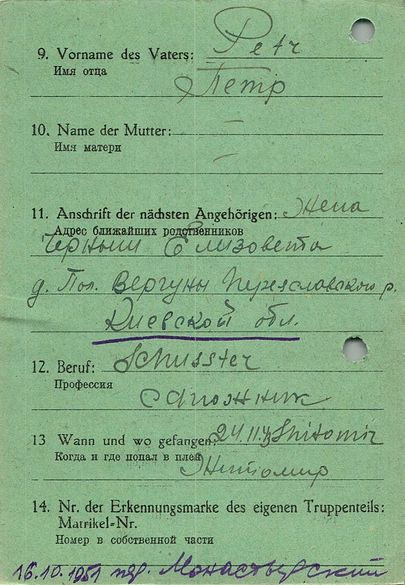 9. Vorname des Vaters: Petr
Имя отца
Петр
10. Name der Mutter: —
Имя матери
—
11. Anschrift der nächsten Angehörigen: Жена
Адрес ближайших родственников
Черныш Елизовета
д. Пол. Вергуны Переяславского р.
Киевской обл.
12. Beruf: Schusster
Профессия
Сапожник
13 Wann und wo gefangen: 24.11.43 Shitomir
Когда и где попал в плен
Житомир
14. Nr. der Erkennungsmarke des eigenen Truppenteils:
Matrikel-Nr.
Номер в собственной части
16.10.1951